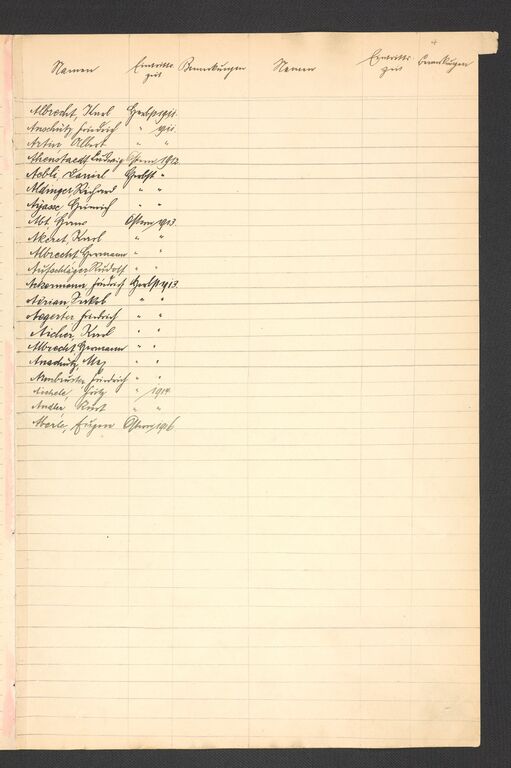 Namen Eintritts zeit Bemerkungen Namen Eintritts zeit Bemerkungen
Albrecht, Karl Herbst 1911.
Anschütz Friedrich " 1911.
Artur Albert " "
Ahenstaedt Ludwig Ostern 1912.
Aebli, Daniel Herbst "
Aldinger Richard " "
Ayasse, Heinrich " "
Abt. Hans Ostern 1913.
Akeret, Karl " "
Albrecht Hermann " "
Aufschläger Rudolf " "
Ackermann, Friedrich Herbst 1913.
Adrian, Jakob " "
Aegerter Friedrich " "
Aicher, Karl " "
Albrecht Hermann " "
Anschütz, Max " "
Armbruster, Friedrich " "
Aichele, Fritz " 1914
Andler, Kurt " "
Aberle, Eugen Ostern 1916